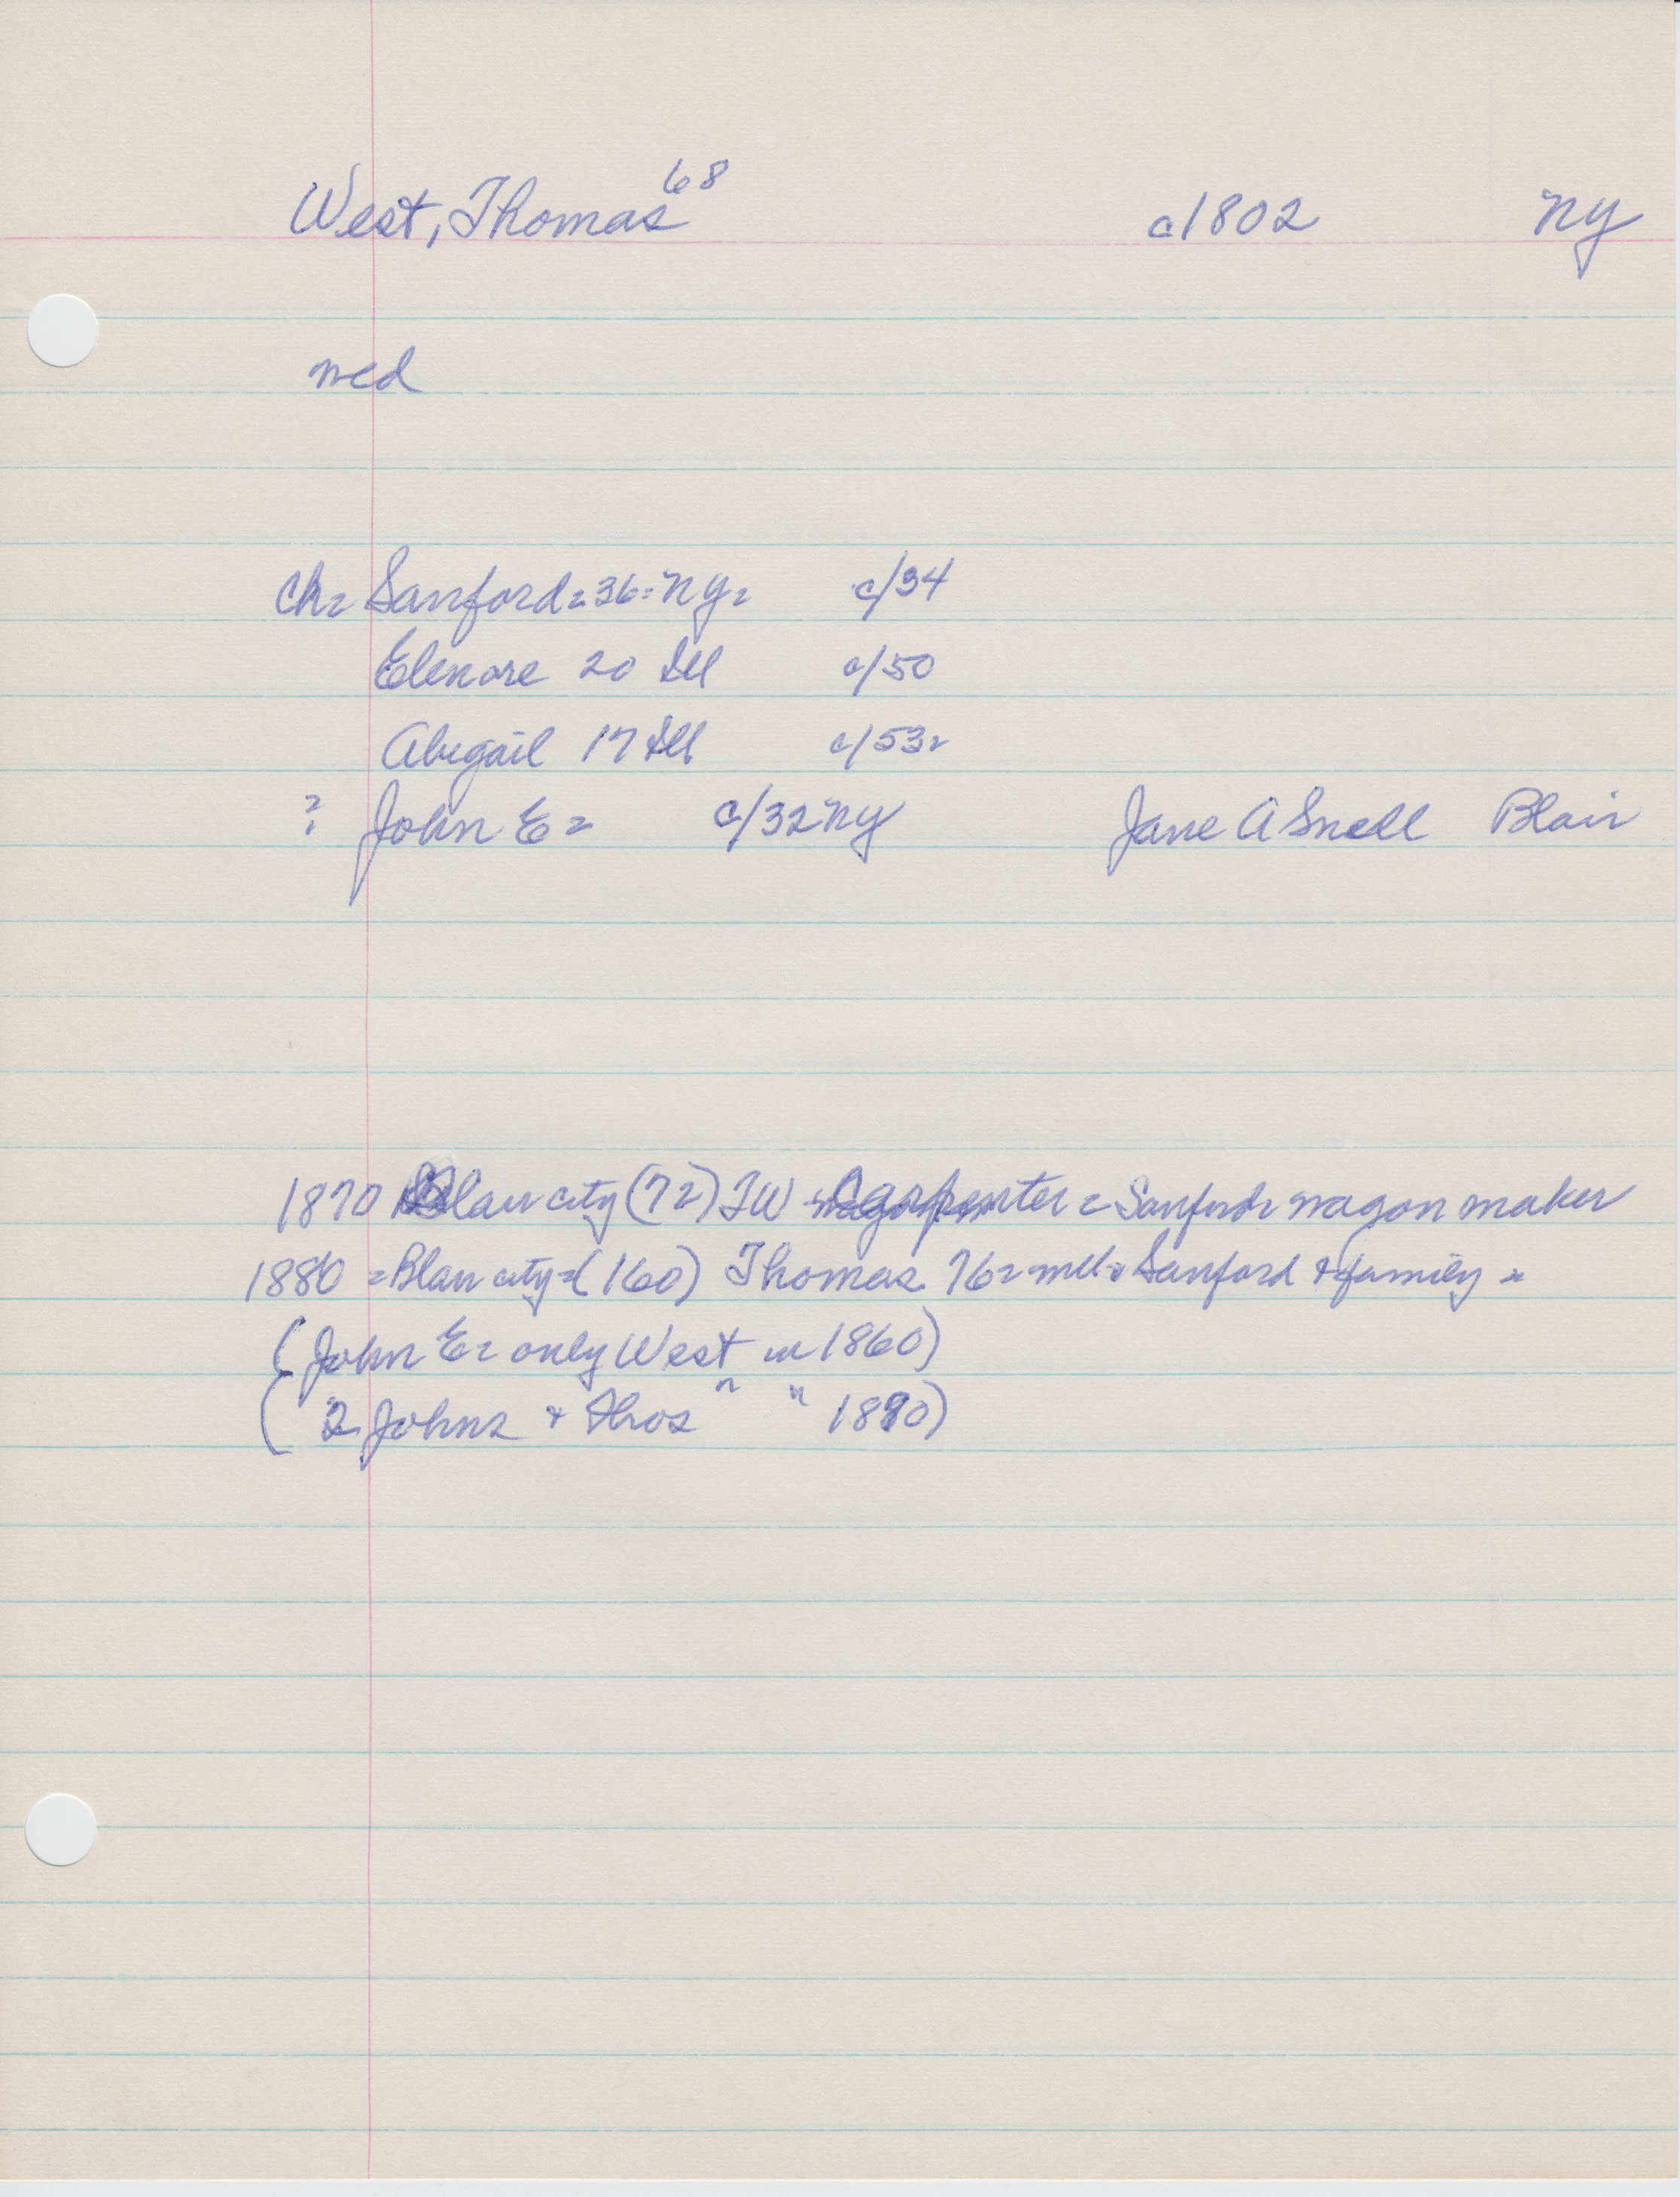 West, Thomas 68 c1802 NY
med
Ch= Sanford=36=NY= c/34
Elenore 20 Ill c/50
Abigail 17 Ill c/53=
? John E= c/32 NY Jane A Snell Blair
1870 Blair city (72) TW Carpenter = Sanford= wagon maker
1880 =Blair city=(160) Thomas 76= Sanford & family =
(John E= only West in 1860)
(2 Johns & Thos " " 1870)